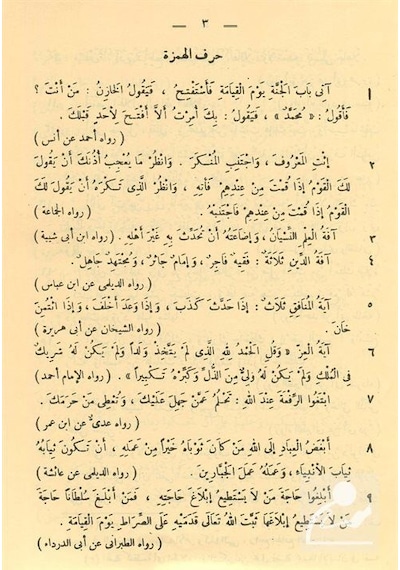 — ٣ —
حرف الهمزة
١ آتِي بَابَ الْجَنَّةِ يَوْمَ الْقِيَامَةِ فَأَسْتَفْتِحُ ، فَيَقُولُ الْخَازِنُ : مَنْ أَنْتَ ؟
فَأَقُولُ : « مُحَمَّدٌ » ، فَيَقُولُ : بِكَ أُمِرْتُ أَلاَّ أَفْتَحَ لِأَحَدٍ قَبْلَكَ .
( رواه أحمد عن أنس )
٢ اِئْتِ الْمَعْرُوفَ ، وَاجْتَنِبِ الْمُنْكَرَ . وَانْظُرْ مَا يُعْجِبُ أُذُنَكَ أَنْ يَقُولَ
لَكَ الْقَوْمُ إِذَا قُمْتَ مِنْ عِنْدِهِمْ فَأْتِهِ ، وَانْظُرِ الَّذِى تَكْرَهُ أَنْ يَقُولَ لَكَ
الْقَوْمُ إِذَا قُمْتَ مِنْ عِنْدِهِمْ فَاجْتَنِبْهُ . ( رواه الجماعة )
٣ آفَةُ الْعِلْمِ النِّسْيَانُ ، وَإِضَاعَتُهُ أَنْ تُحَدِّثَ بِهِ غَيْرَ أَهْلِهِ . ( رواه ابن أبى شيبة )
٤ آفَةُ الدِّينِ ثَلَاثَةٌ : فَقِيهٌ فَاجِرٌ ، وَإِمَامٌ جَائِرٌ ، وَمُجْتَهِدٌ جَاهِلٌ .
( رواه الديلمى عن ابن عباس )
٥ آيَةُ الْمُنَافِقِ ثَلَاثٌ : إِذَا حَدَّثَ كَذَبَ ، وَإِذَا وَعَدَ أَخْلَفَ ، وَإِذَا ائْتُمِنَ
خَانَ . ( رواه الشيخان عن أبى هريرة )
٦ آيَةُ الْعِزِّ « وَقُلِ الْحَمْدُ لِلهِ الَّذِى لَمْ يَتَّخِذْ وَلَداً وَلَمْ يَكُنْ لَهُ شَرِيكٌ
فِى الْمُلْكِ وَلَمْ يَكُنْ لَهُ وَلِىٌّ مِنَ الذُّلِّ وَكَبِّرْهُ تَكْبِيراً » . ( رواه الإمام أحمد )
٧ ابْتَغُوا الرِّفْعَةَ عِنْدَ اللهِ : تَحْلُمُ عَمَّنْ جَهِلَ عَلَيْكَ ، وَتُعْطِى مَنْ حَرَمَكَ .
( رواه عدى عن ابن عمر )
٨ أَبْغَضُ الْعِبَادِ إِلَى اللهِ مَنْ كَانَ ثَوْبَاهُ خَيْراً مِنْ عَمَلِهِ ، أَنْ تَكُونَ ثِيَابُهُ
ثِيَابَ الْأَنْبِيَاءِ ، وَعَمَلُهُ عَمَلَ الْجَبَّارِينَ . ( رواه الديلمى عن عائشة )
٩ أَبْلِغُوا حَاجَةَ مَنْ لَا يَسْتَطِيعُ إِبْلَاغَ حَاجَتِهِ ، فَمَنْ أَبْلَغَ سُلْطَانًا حَاجَةَ
مَنْ لَا يَسْتَطِيعُ إِبْلَاغَهَا ثَبَّتَ اللهُ تَعَالَى قَدَمَيْهِ عَلَى الصِّرَاطِ يَوْمَ الْقِيَامَةِ .
( رواه الطبرانى عن أبى الدرداء )